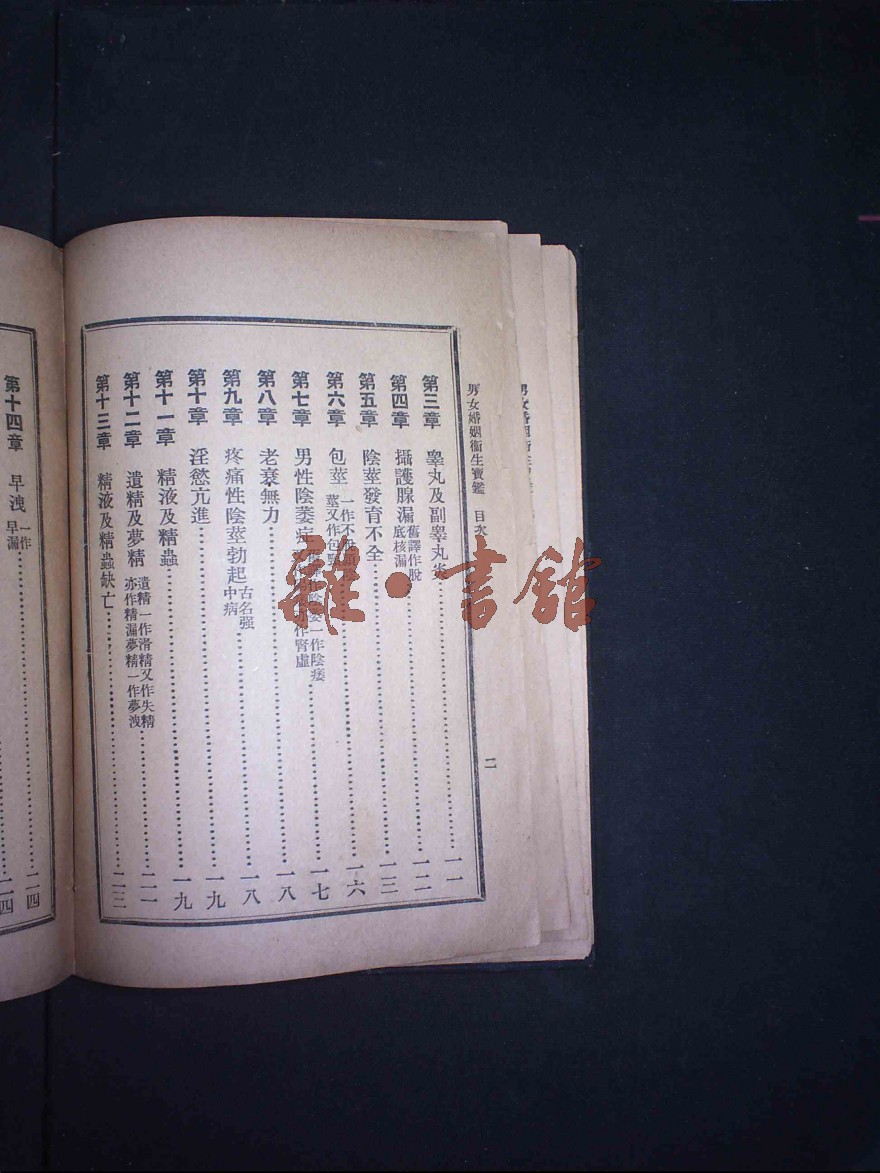 男女婚姻衞生寶鑑　目次　二
第三章　睾丸及副睾丸炎…………一一
第四章　攝護腺漏 舊譯作脫底核漏…………一二
第五章　陰莖發育不全…………一三
第六章　包莖 一作不 莖又作包…………一六
第七章　男性陰萎病 一作陰痿 作腎虛…………一七
第八章　老衰無力…………一八
第九章　疼痛性陰莖勃起 古名强中病…………一八
第十章　淫慾亢進…………一九
第十一章　精液及精蟲…………一九
第十二章　遺精及夢精 遺精一作滑精又作失精亦作精漏夢精一作夢洩…………二一
第十三章　精液及精蟲缺亡…………二三
第十四章　早洩 一作早漏…………二四
二四
雜·書館